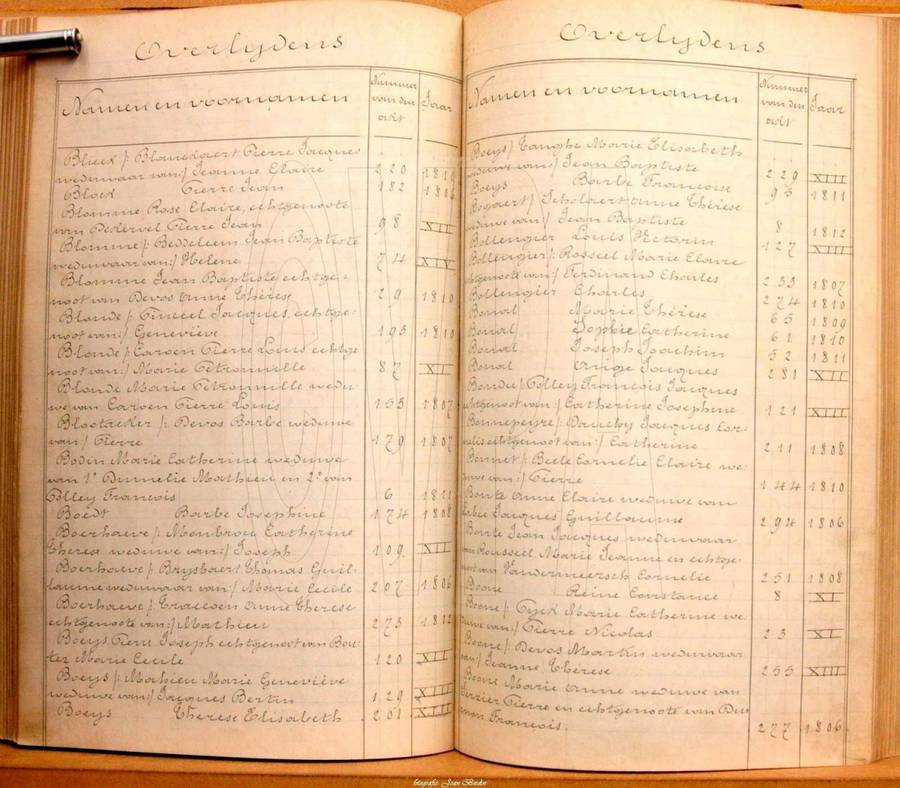 Overlydens
Namen en voornamen
Nummer van den akt
Jaar
Block /: Blanckaert Pierre Jacques
weduwaar van:/ Jeanne Claire 220 1810
Block Pierre Jean 182 1806
Blomme Rose Claire, echtgenoote
van Pierre Jean 98 XII
Blomme /: Beddeleem Jean Baptiste
weduwaar van:/ Helene 74
Blomme Jean Baptiste echtge-
noot van Devos Anne Thérèse 29 1810
Blonde /: Jacques, echtge-
noot van:/ Geneviève 193 1810
Blonde /: Caroen Pierre Louis echtge
noot van:/ Marie Petronnille 87 XI
Blonde Marie Petronnille wedu
we van Caroen Pierre Louis 153 1807
Blootacker /: Devos Barbe weduwe
van:/ Pierre 179 1807
Bodin Marie Catherine weduwe
van 1° Dumelie Mathieu en 2° van
Tolley Francois 6 1811
Boedt Barbe Josephine 174 1808
Boerhave /: Monbrou Catherine
Therese weduwe van:/ Joseph 109 XII
Boerhaeve /: Brysbaert Thomas Guil-
laume weduwaar van:/ Marie Cecile 207 1806
Boerhaeve /: Anne Therese
echtgenoote van:/ Mathieu 273 1812
Boeys Pierre Joseph echtgenoot van Bou-
ter Marie Cecile 120 XIII
Boeys /: Mahieu Marie Geneviève
weduwe van:/ Jacques Bertin 129 XIII
Boeys Therese Elisabeth 201 XIII
Overlydens
Namen en voornamen
Nummer van den akt
Jaar
Boeys /: Tanghe Marie Elisabeth
weduwe van:/ Jean Baptiste 229 XIII
Boeys Barbe Francoise 93 1811
Bogaert /: Anne Thérèse
weduwe van:/ Jean Baptiste 8 1812
Bollengier Louis Victorin 127 XIII
Bollengier /: Rosseel Marie Claire
echtgenoote van:/ Ferdinand Charles 233 1807
Bollengier Charles 274 1810
Bonal Marie Thérèse 63 1809
Bonal Sophie Catherine 61 1810
Bonal Joseph Joachim 52 1811
Bonal Ange Jacques 281 XII
Bondu /: Tolley François Jacques
echtgenoot van:/ Catherine Josephine 121 XIII
Bonnepeyre /: Jacques Cor-
nelis echtgenoot van:/ Catherine 211 1808
Bonnet /: Beele Cornelie Claire we-
duwe van:/ Pierre 144 1810
Bonte Anne Claire weduwe van
Jacques Guillaume 294 1806
Bonte Jean Jacques weduwaar
van Rousseel Marie Jeanne en echtge-
noot van Vandermeersch Cornelie 251 1808
Boone Reine Constance 8 XI
Boone /: Marie Catherine we-
duwe van:/ Pierre Nicolas 23 XI
Boone /: Devos Martin weduwaar
van:/ Jeanne Thérèse 255 XIII
Boone Marie Anne weduwe van
Pierre en echtgenoote van
François. 277 1806
fotografie: Jean Bardin